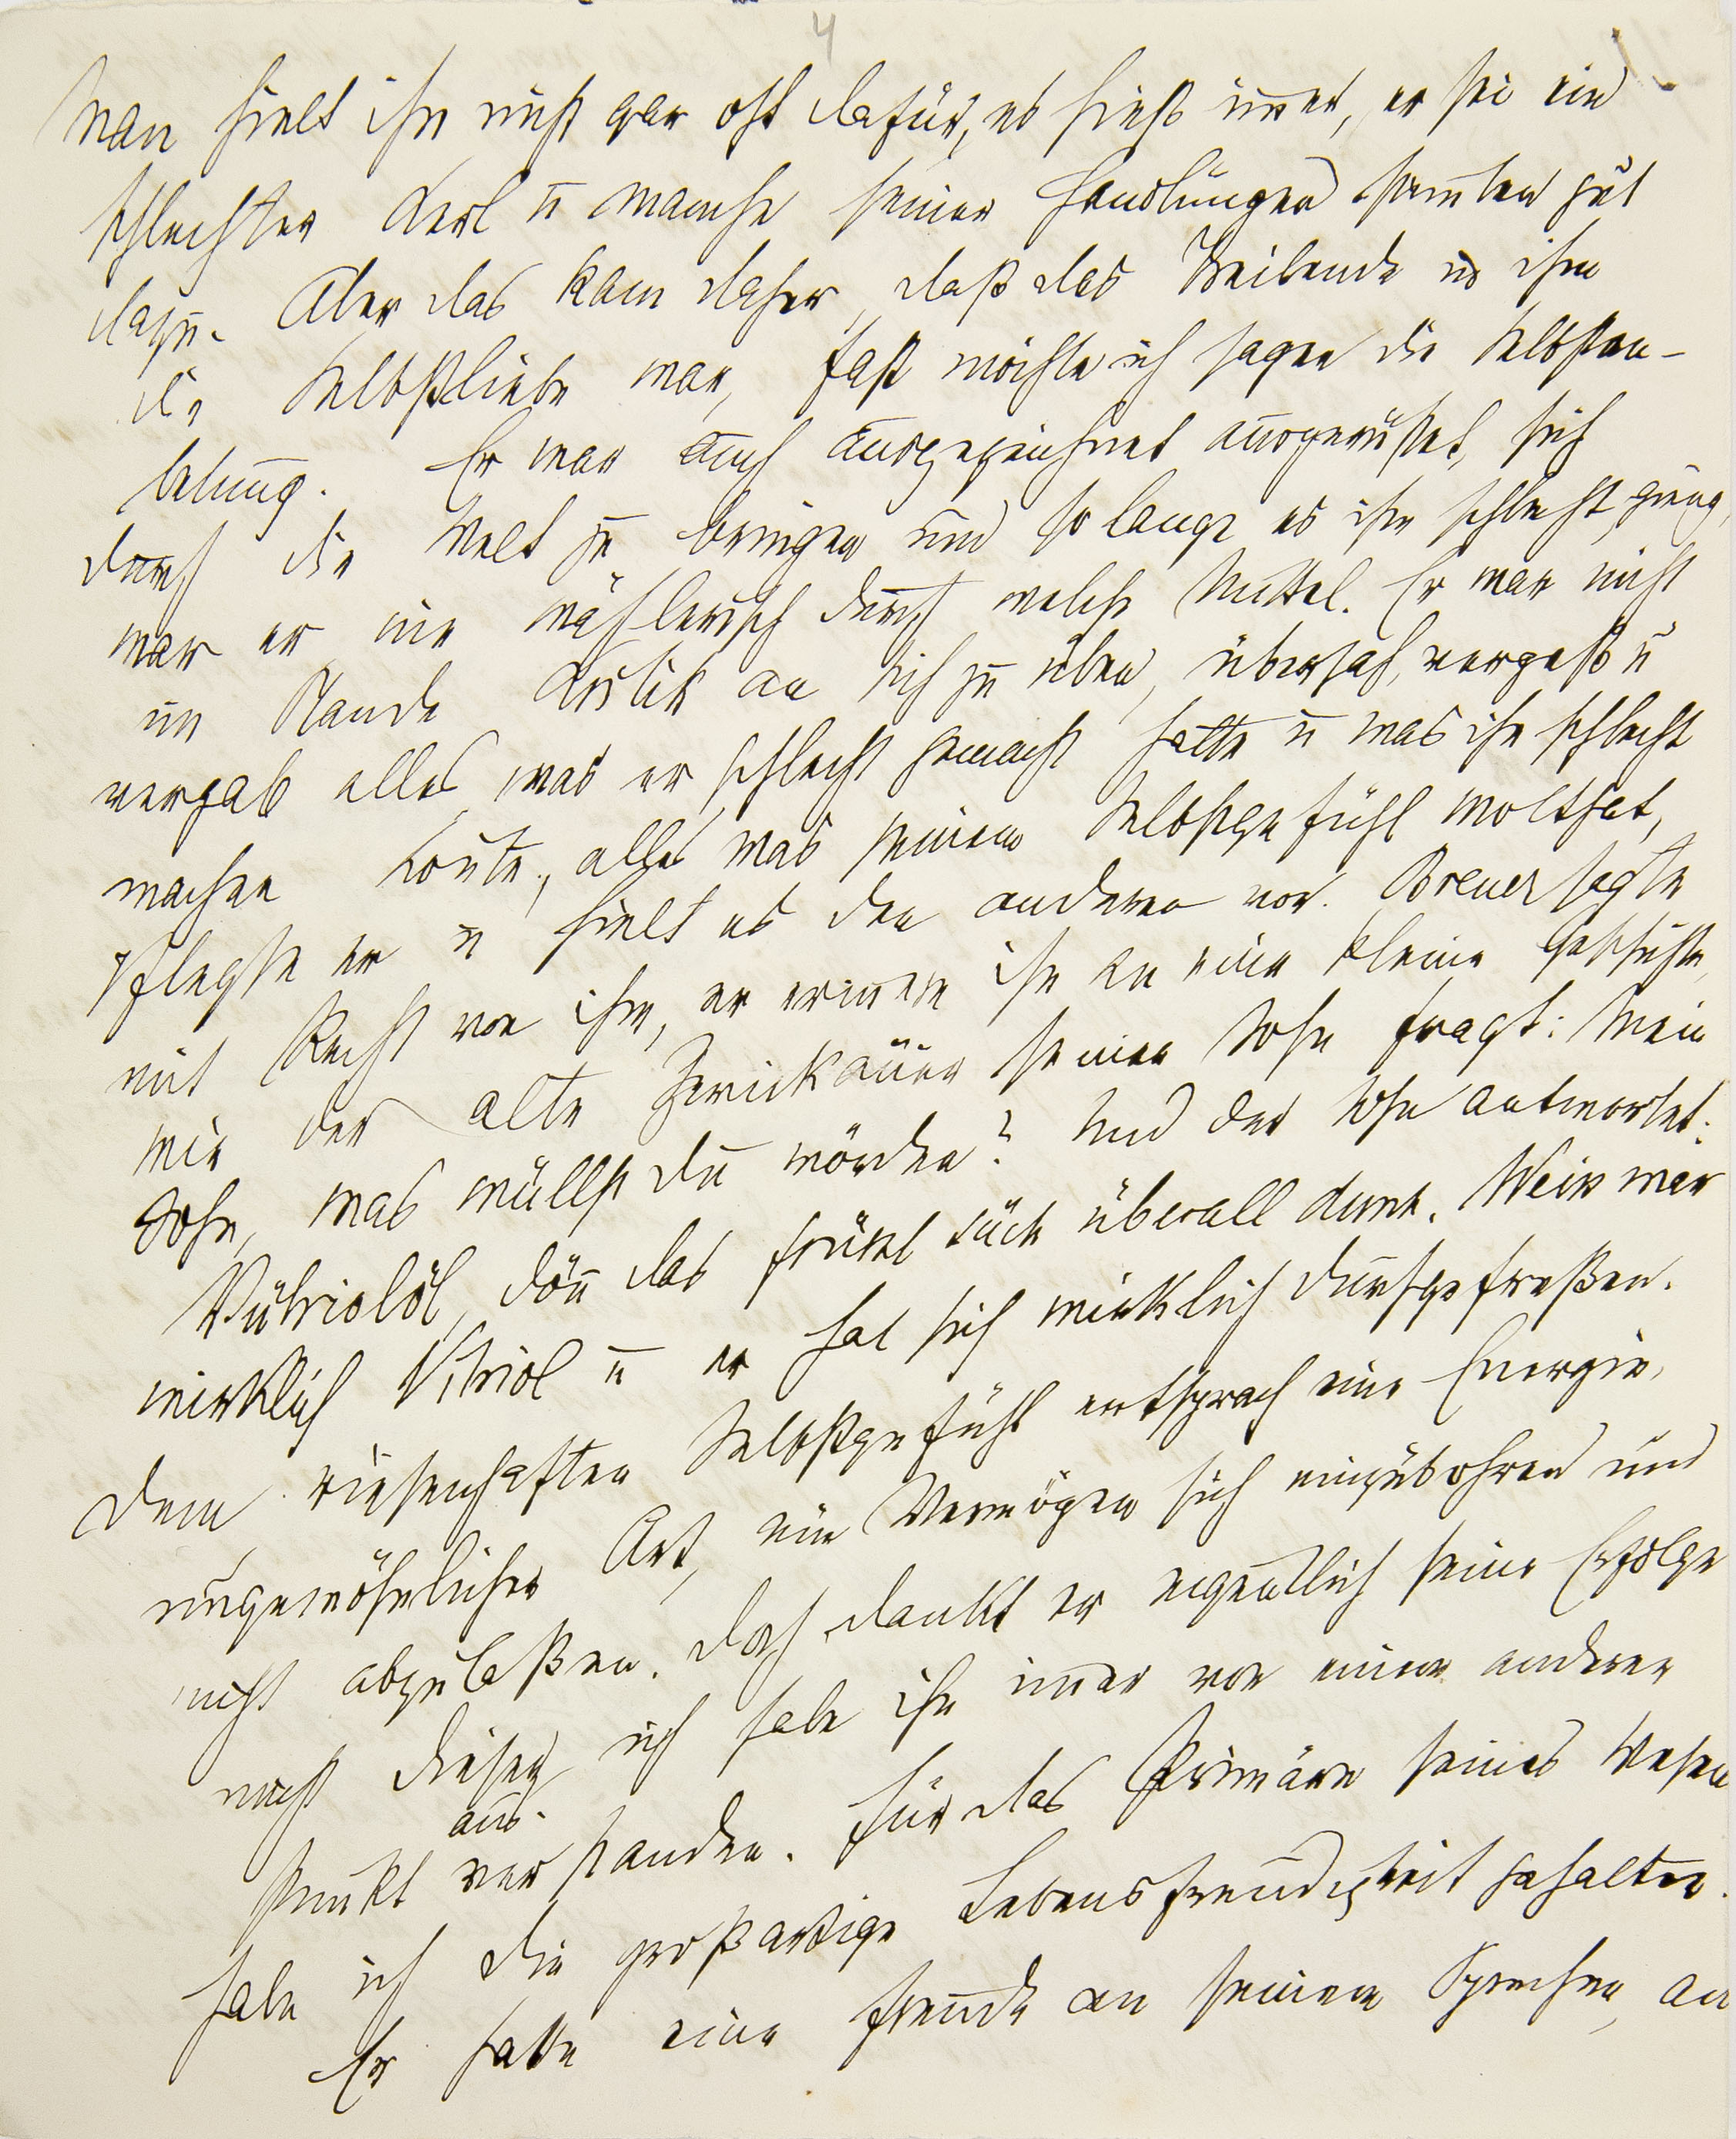 4
Man hielt ihn nicht gar oft dafür, es hieß im̄er, er sei ein
schlechter Kerl u manche seiner Handlungen stim̄ten gut
dazu. Aber das kam daher, daß das Treibende in ihm
die Selbstliebe war, fast möchte ich sagen die Selbstan-
betung. Er war auch ausgezeichnet ausgerüstet, sich
durch die Welt zu bringen und so lange es ihm schlecht gieng,
war er nie wählerisch durch welche Mittel. Er war nicht
im Stande Kritik an sich zu üben, übersah, vergaß u
vergab alles, was er schlecht gemacht hatte u was ihn schlecht
machen kon̄te, alles was seinem Selbstgefühl wolthat,
pflegte er u hielt es den anderen vor. Breuer sagte
mit Recht von ihm, er erin̄ere ihn an eine kleine Geschichte,
wie der alte seinen Sohn fragt: Mein
Sohn, was wüllst du wörden? Und der Sohn antwortet:
Vütriolöl, dön̄ das frützt süch überall durch. Weiß war
wirklich Vitriol u er hat sich wirklich durchgefreßen.
Dem riesenhaften Selbstgefühl entsprach eine Energie,
ungewöhnlicher Art, ein Vermögen sich einzubohren und
nicht abzulaßen. Doch dankt er eigentlich seine Erfolge
nicht dieser, ich habe ihn im̄er von einem anderen
aus
Punkt verstanden. Für das Primäre seines Wesens
habe ich die großartige Lebensfreudigkeit gehalten.
Er hatte eine Freude an seinem Sprechen, an